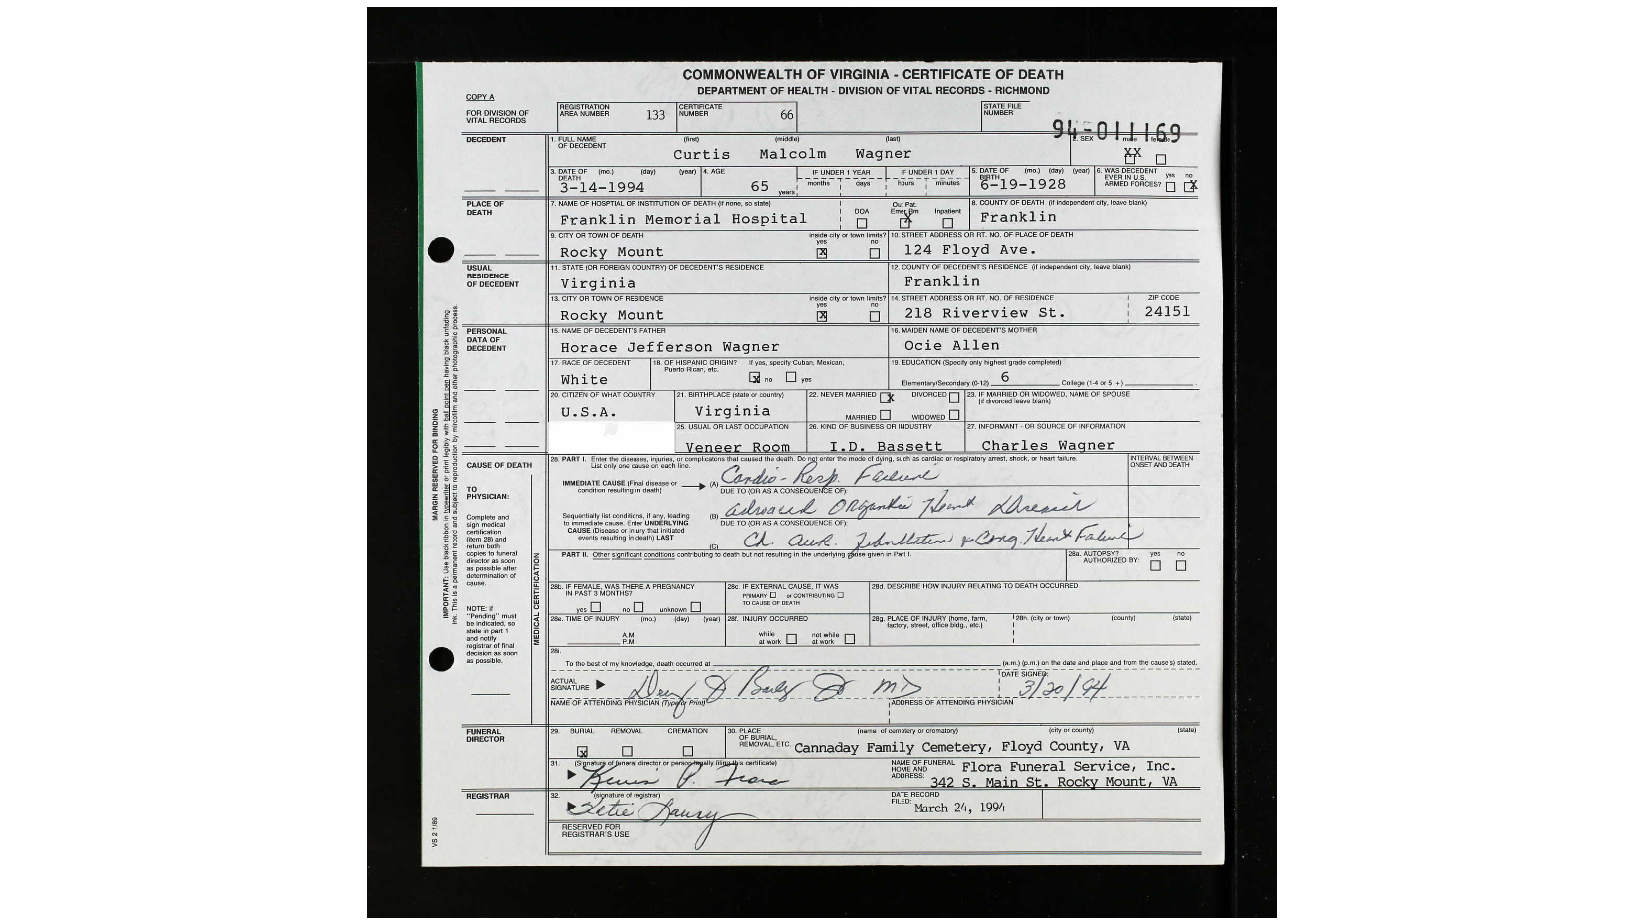 COMMONWEALTH OF VIRGINIA - CERTIFICATE OF DEATH
DEPARTMENT OF HEALTH - DIVISION OF VITAL RECORDS - RICHMOND
COPY A
FOR DIVISION OF VITAL RECORDS
REGISTRATION AREA NUMBER 133 CERTIFICATE NUMBER 66 STATE FILE NUMBER
94-011169
DECEDENT 1. FULL NAME OF DECEDENT (first) (middle) (last) 2. SEX male female
Curtis Malcolm Wagner XX
3. DATE OF DEATH (mo.) (day) (year) 4. AGE IF UNDER 1 YEAR IF UNDER 1 DAY 5. DATE OF BIRTH (mo.) (day) (year) 6. WAS DECEDENT EVER IN U.S. ARMED FORCES? yes no
3-14-1994 65 years months days hours minutes 6-19-1928 X
PLACE OF DEATH 7. NAME OF HOSPTIAL OF INSTITUTION OF DEATH (if none, so state) DOA Ou. Pat. Emer Rm Inpatient 8. COUNTY OF DEATH (if independent city, leave blank)
Franklin Memorial Hospital X Franklin
9. CITY OR TOWN OF DEATH inside city or town limits? yes no 10. STREET ADDRESS OR RT. NO. OF PLACE OF DEATH
Rocky Mount X 124 Floyd Ave.
USUAL RESIDENCE OF DECEDENT 11. STATE (OR FOREIGN COUNTRY) OF DECEDENT'S RESIDENCE 12. COUNTY OF DECEDENT'S RESIDENCE (if independent city, leave blank)
Virginia Franklin
13. CITY OR TOWN OF RESIDENCE inside city or town limits? yes no 14. STREET ADDRESS OR RT. NO. OF RESIDENCE ZIP CODE
Rocky Mount X 218 Riverview St. 24151
PERSONAL DATA OF DECEDENT 15. NAME OF DECEDENT'S FATHER 16. MAIDEN NAME OF DECEDENT'S MOTHER
Horace Jefferson Wagner Ocie Allen
17. RACE OF DECEDENT 18. OF HISPANIC ORIGIN? If yes, specify Cuban, Mexican, Puerto Rican, etc. 19. EDUCATION (Specify only highest grade completed)
White X no yes Elementary/Secondary (0-12) 6 College (1-4 or 5 +)
20. CITIZEN OF WHAT COUNTRY 21. BIRTHPLACE (state or country) 22. NEVER MARRIED X DIVORCED 23. IF MARRIED OR WIDOWED, NAME OF SPOUSE (if divorced leave blank)
U.S.A. Virginia MARRIED WIDOWED
25. USUAL OR LAST OCCUPATION 26. KIND OF BUSINESS OR INDUSTRY 27. INFORMANT - OR SOURCE OF INFORMATION
Veneer Room I.D. Bassett Charles Wagner
CAUSE OF DEATH 28. PART I. Enter the diseases, injuries, or complicatons that caused the death. Do not enter the mode of dying, such as cardiac or respiratory arrest, shock, or heart failure. List only one cause on each line. INTERVAL BETWEEN ONSET AND DEATH
IMMEDIATE CAUSE (Final disease or condition resulting in death) (A) Cardio-Resp. Failure
DUE TO (OR AS A CONSEQUENCE OF):
Sequentially list conditions, if any, leading to immediate cause. Enter UNDERLYING CAUSE (Disease or injury that initiated events resulting in death) LAST
(B) advanced Organic Heart Disease
DUE TO (OR AS A CONSEQUENCE OF):
(C) Ch. Aur. Fibrillation & Cong. Heart Failure
TO PHYSICIAN:
Complete and sign medical certification (item 28) and return both copies to funeral director as soon as possible after determination of cause.
NOTE: If "Pending" must be indicated, so state in part 1 and notify registrar of final decision as soon as possible.
MEDICAL CERTIFICATION
PART II. Other significant conditions contributing to death but not resulting in the underlying cause given in Part I. 28a. AUTOPSY? AUTHORIZED BY: yes no
28b. IF FEMALE, WAS THERE A PREGNANCY IN PAST 3 MONTHS? yes no unknown 28c. IF EXTERNAL CAUSE, IT WAS PRIMARY or CONTRIBUTING TO CAUSE OF DEATH 28d. DESCRIBE HOW INJURY RELATING TO DEATH OCCURRED
28e. TIME OF INJURY (mo.) (day) (year) A.M P.M 28f. INJURY OCCURRED while at work not while at work 28g. PLACE OF INJURY (home, farm, factory, street, office bldg., etc.) 28h. (city or town) (county) (state)
28i.
To the best of my knowledge, death occurred at (a.m.) (p.m.) on the date and place and from the cause(s) stated.
ACTUAL SIGNATURE MD DATE SIGNED: 3/20/94
NAME OF ATTENDING PHYSICIAN (Type or Print) ADDRESS OF ATTENDING PHYSICIAN
FUNERAL DIRECTOR 29. BURIAL REMOVAL CREMATION 30. PLACE OF BURIAL, REMOVAL, ETC. (name of cemetery or crematory) (city or county) (state)
X Cannaday Family Cemetery, Floyd County, VA
31. (Signature of funeral director or person legally filing this certificate) NAME OF FUNERAL HOME AND ADDRESS: Flora Funeral Service, Inc.
342 S. Main St. Rocky Mount, VA
REGISTRAR 32. (signature of registrar) DATE RECORD FILED: March 24, 1994
Katie
RESERVED FOR REGISTRAR'S USE
MARGIN RESERVED FOR BINDING
IMPORTANT: Use black ribbon in typewriter or print legibly with ball point pen having black unfading ink. This is a permanent record and subject to reproduction by microfilm and other photographic process.
VS 2 1/89